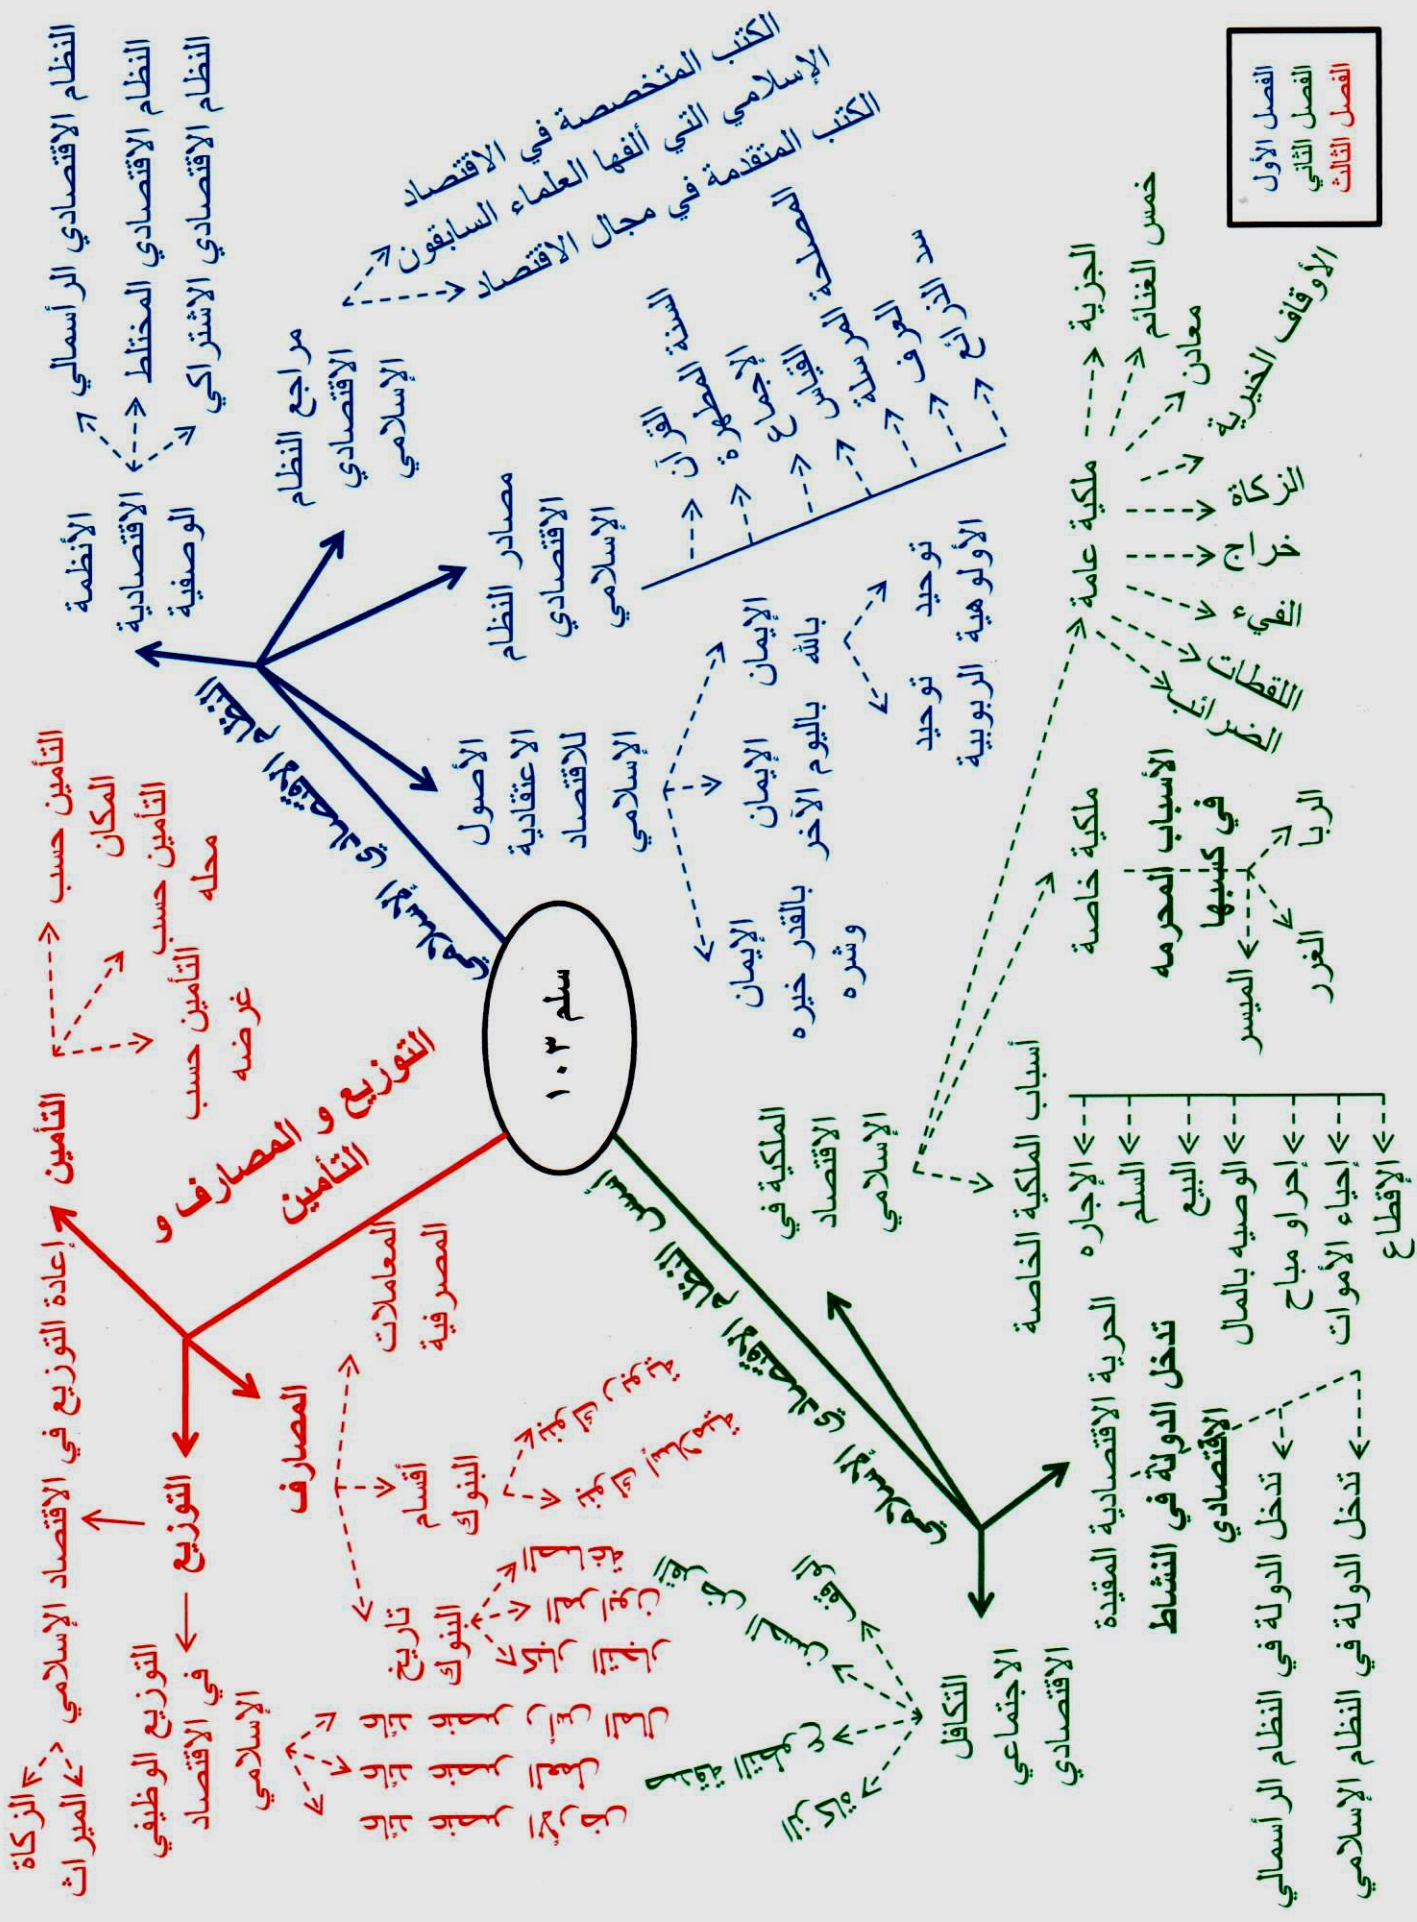 الفصل الأول
الفصل الثاني
الفصل الثالث
سلم ١٠٣
النظام الاقتصادي الإسلامي
الأنظمة
الاقتصادية
الوصفية
النظام الاقتصادي الرأسمالي
النظام الاقتصادي المختلط
النظام الاقتصادي الاشتراكي
مراجع النظام
الاقتصادي
الإسلامي
الكتب المتخصصة في الاقتصاد
الإسلامي التي ألفها العلماء السابقون
الكتب المتقدمة في مجال الاقتصاد
مصادر النظام
الاقتصادي
الإسلامي
القرآن
السنة المطهرة
الإجماع
القياس
المصلحة المرسلة
العرف
سد الذرائع
الأصول
الاعتقادية
للاقتصاد
الإسلامي
الإيمان
بالله
توحيد
الأولوهية
توحيد
الربوبية
الإيمان
باليوم الآخر
الإيمان
بالقدر خيره
وشره
أسس النظام الاقتصادي الإسلامي
الملكية في
الاقتصاد
الإسلامي
ملكية عامة
الجزية
خمس الغنائم
معادن
الأوقاف الخيرية
الزكاة
اللقطات
ملكية خاصة
الأسباب المحرمه
في كسبها
الربا
الغرر
الميسر
أسباب الملكية الخاصة
الإجاره
السلم
البيع
الوصيه بالمال
إحراو مباح
إحياء الأموات
الإقطاع
الحرية الاقتصادية المقيدة
تدخل الدولة في النشاط
الاقتصادي
تدخل الدولة في النظام الرأسمالي
تدخل الدولة في النظام الإسلامي
التكافل
الاجتماعي
الاقتصادي
الوقف
القرض
الحسن
صدقة التطوع
الزكاة
التوزيع و المصارف و
التأمين
التأمين
التأمين حسب
المكان
التأمين حسب
محله
التأمين حسب
غرضه
المصارف
المعاملات
المصرفية
أقسام
البنوك
بنوك ربوية
بنوك أسلامية
تاريخ
البنوك
الصاغة
المرابون
كبار التجار
التوزيع
إعادة التوزيع في الاقتصاد الإسلامي
الزكاة
الميراث
التوزيع الوظيفي
في الاقتصاد
الإسلامي
عائد عنصر رأس المال
عائد عنصر العمل
عائد عنصر الأرض